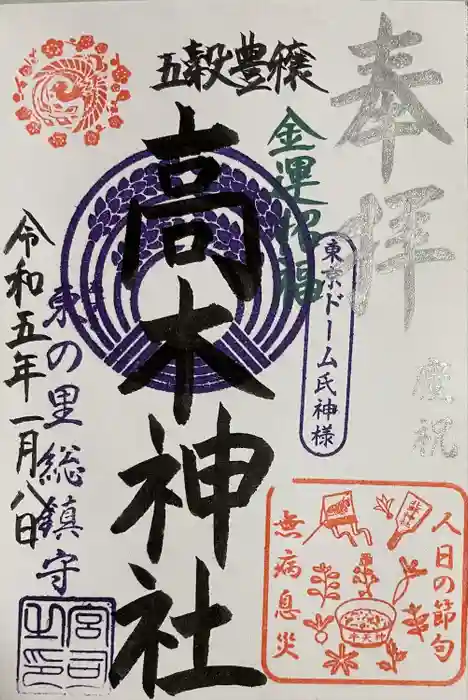 奉拝
金運招福
五穀豊穣
東京ドーム氏神様
高木神社
東の里総鎮守
令和五年一月八日
人日の節句
無病息災
牛天神
宮司之印